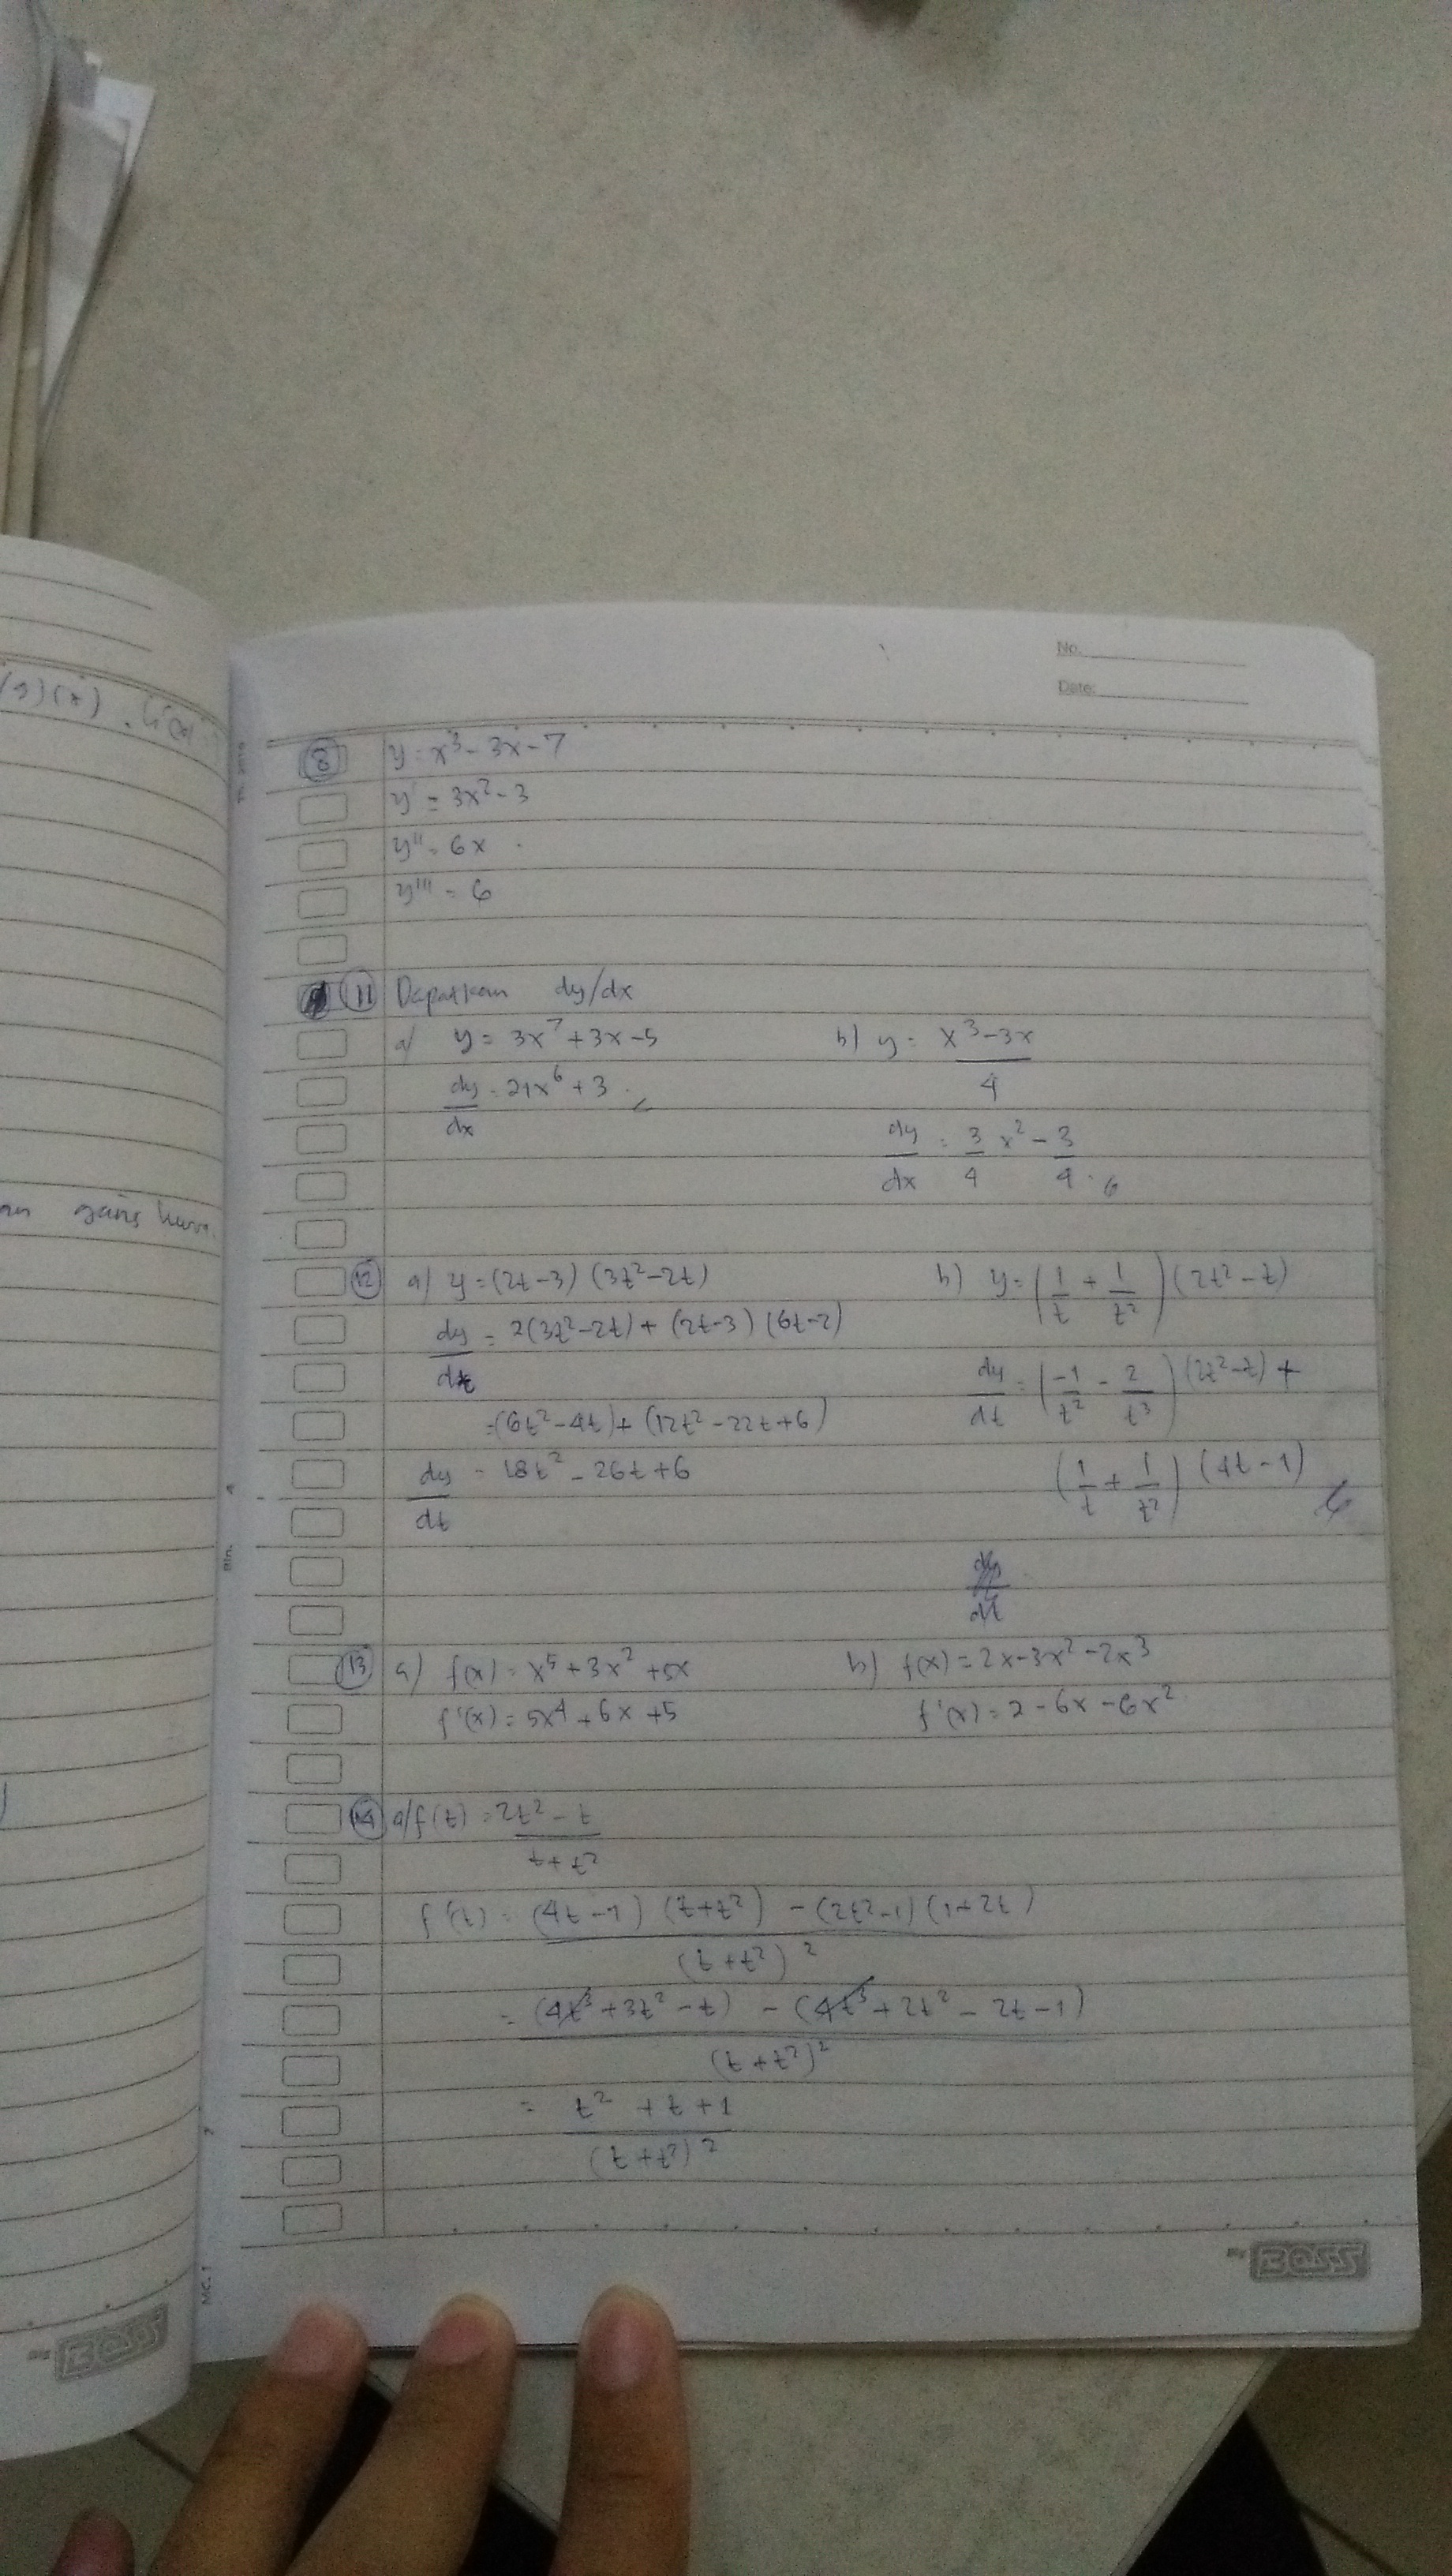 No.
Date:
(g)(x) . h(x)
garis
8 y = x³ - 3x - 7
y' = 3x² - 3
y'' = 6x
y''' = 6
11 Dapatkan dy/dx
a/ y = 3x⁷ + 3x - 5
dy/dx = 21x⁶ + 3
b) y = (x³ - 3x)/4
dy/dx = 3/4 x² - 3/4
12 a) y = (2t - 3) (3t² - 2t)
dy/dt = 2(3t² - 2t) + (2t - 3) (6t - 2)
= (6t² - 4t) + (12t² - 22t + 6)
dy/dt = 18t² - 26t + 6
b) y = (1/t + 1/t²) (2t² - t)
dy/dt = (-1/t² - 2/t³) (2t² - t) +
(1/t + 1/t²) (4t - 1)
13 a) f(x) = x⁵ + 3x² + 5x
f'(x) = 5x⁴ + 6x + 5
b) f(x) = 2x - 3x² - 2x³
f'(x) = 2 - 6x - 6x²
14 a/ f(t) = (2t² - t)/(t + t²)
f'(t) = (4t - 1) (t + t²) - (2t² - 1) (1 + 2t)
(t + t²)²
= (4t³ + 3t² - t) - (4t³ + 2t² - 2t - 1)
(t + t²)²
= t² + t + 1
(t + t²)²
My BOSS
My BOSS